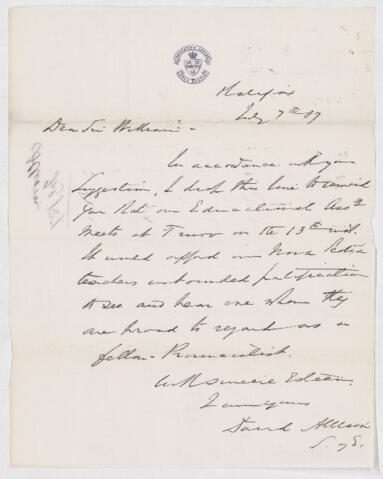 Halifax
July 7th 87
Dear Sir William -
In accordance with your
suggestion, I drop this line to remind
you that our Educational Assn
meets at Truro on the 13th inst.
It would afford our Nova Scotia
teachers unbounded gratification
to see and hear one whom they
are proud to regard as a
fellow-Provincialist.
With sincere Esteem
I am yours
David Allison
S. of E.